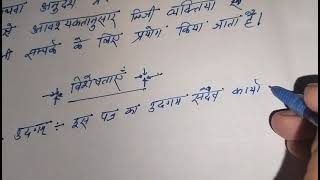 अनुदेश
आवश्यकतानुसार निजी व्यक्तियों
सम्पर्क के लिए प्रयोग किया जाता है।
विशेषताएँ
उद्गम :- इस पत्र का उदगम सदैव कार्या